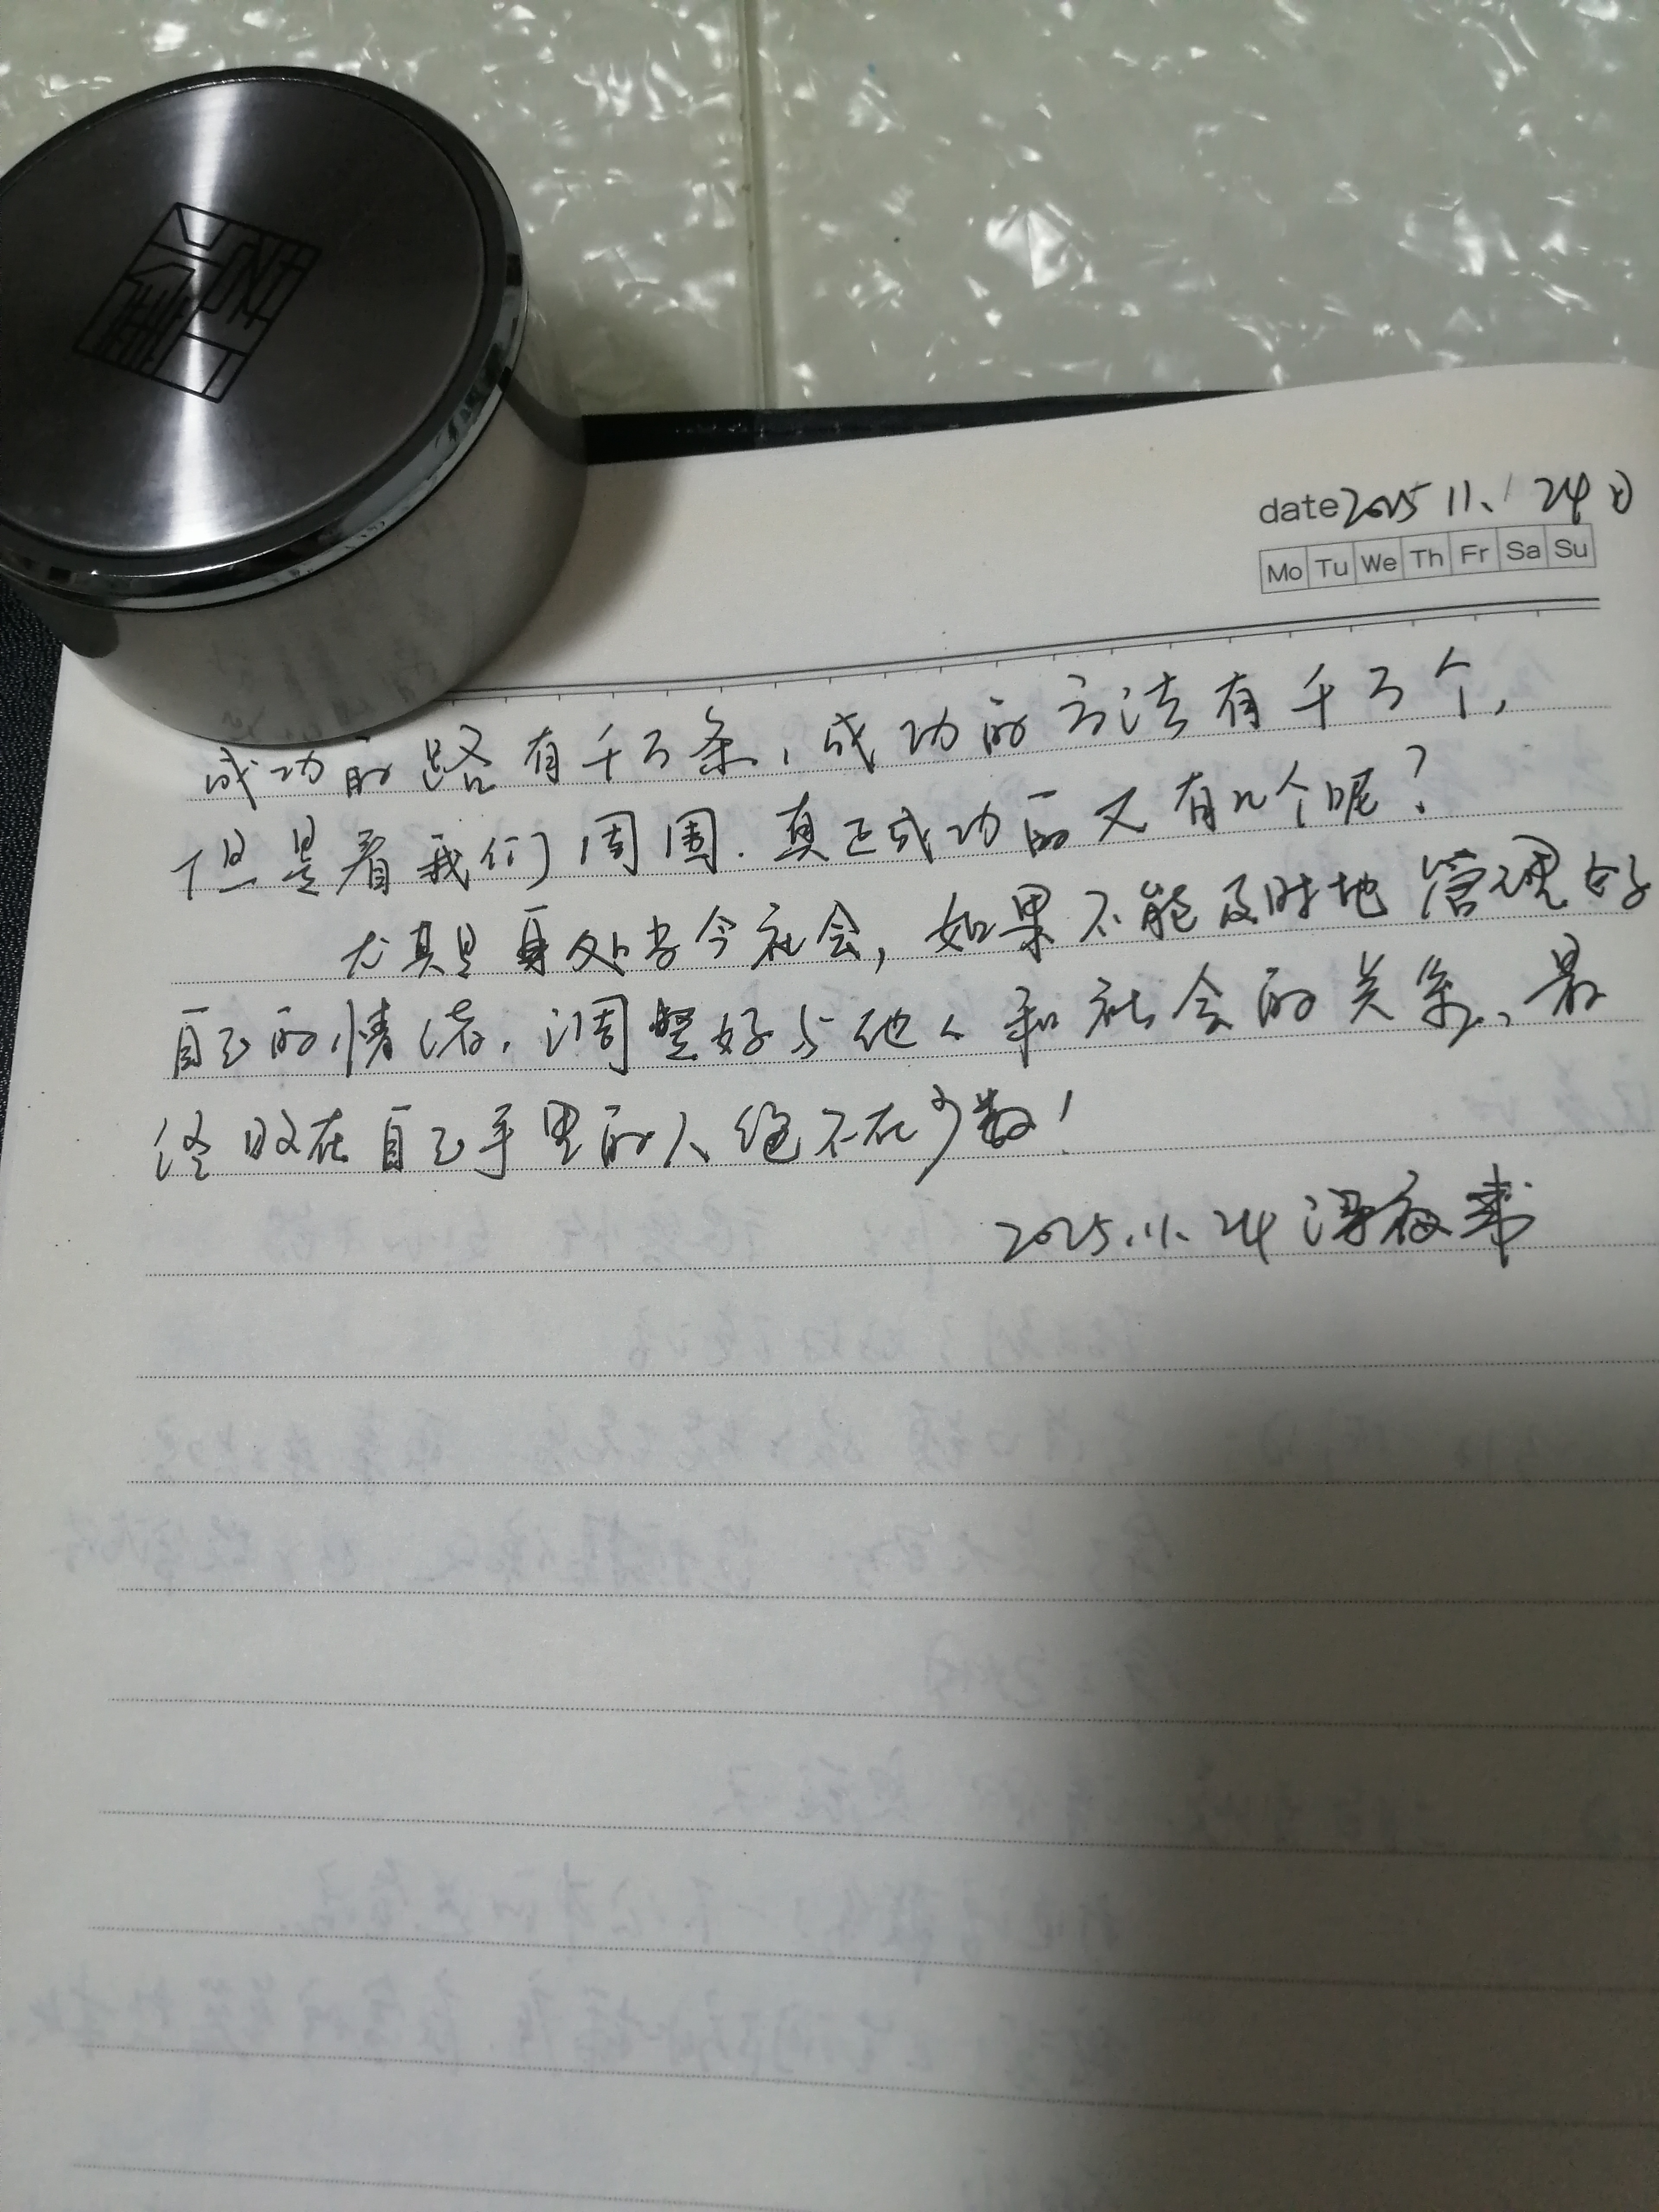 date 2025 11. 24日
Mo Tu We Th Fr Sa Su
成功的路有千万条,成功的方法有千万个,
但是看我们周围.真正成功的又有几个呢?
尤其是身处当今社会,如果不能及时地管理好
自己的情绪,调整好与他人和社会的关系、最
终败在自己手里的人绝不在少数!
2025.11.24